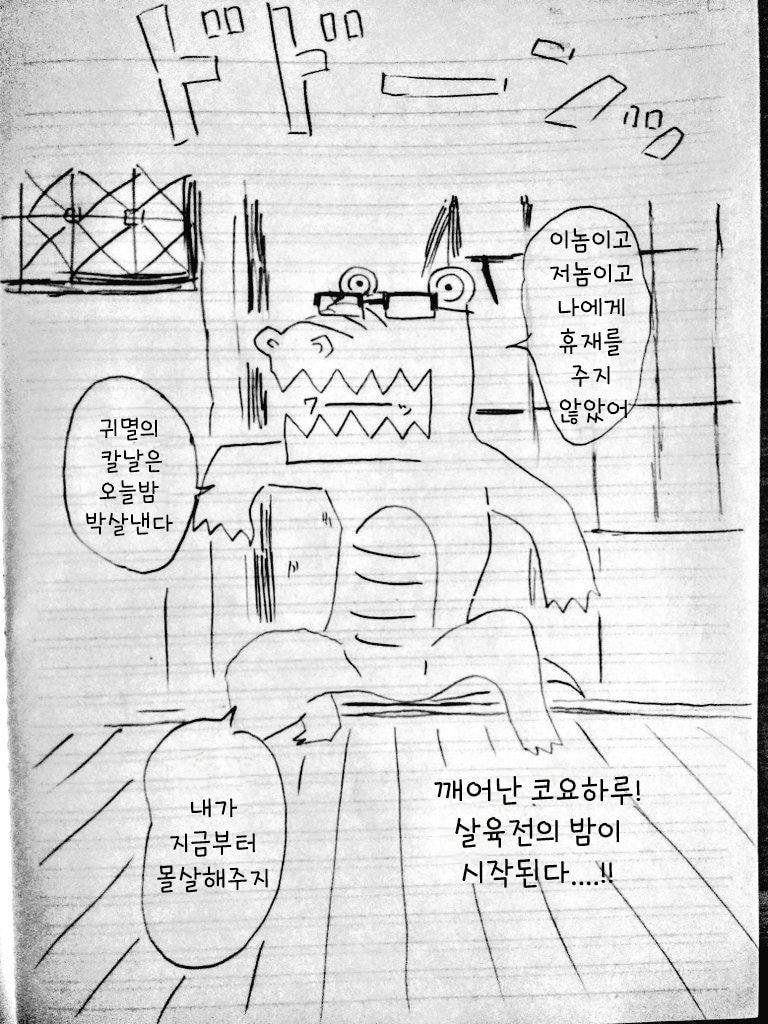 ドドーンッ
이놈이고
저놈이고
나에게
휴재를
주지
않았어
ワーッ
귀멸의
칼날은
오늘밤
박살낸다
내가
지금부터
몰살해주지
깨어난 코요하루!
살육전의 밤이
시작된다....!!